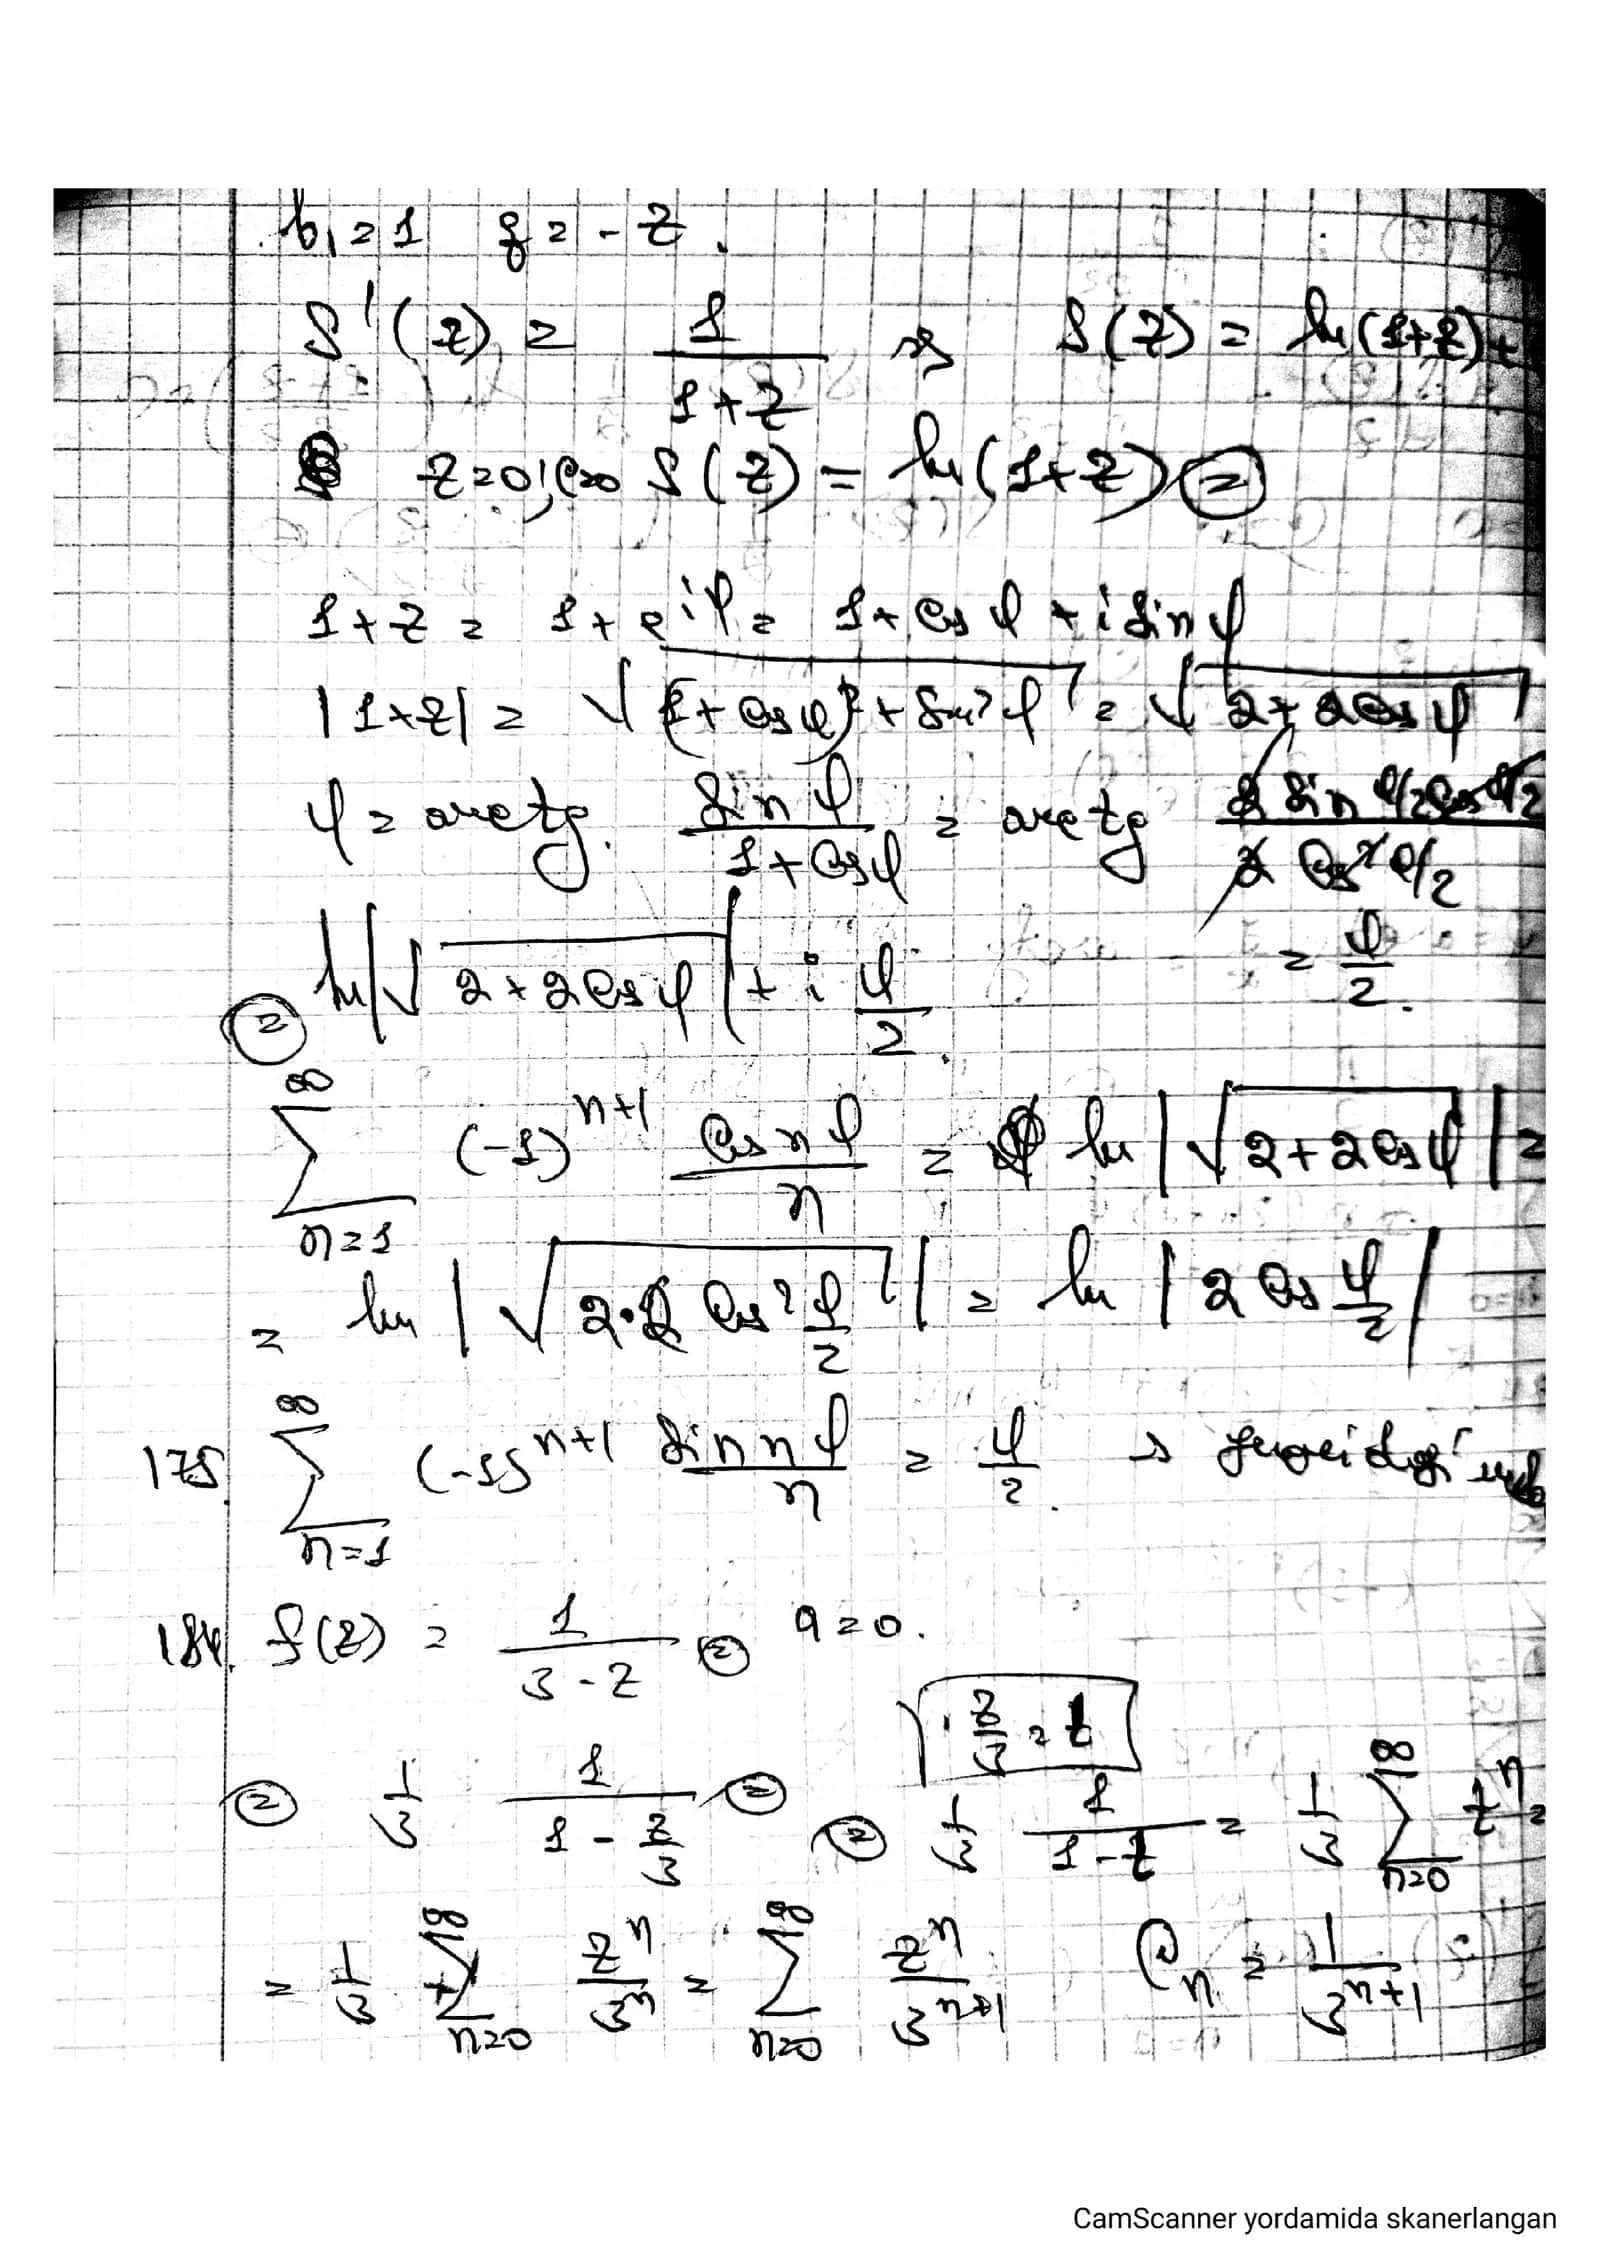 b₁ = 1 q = - z.
S'(z) = 1/(1+z) ⇒ S(z) = ln(1+z) +
z=0; C=0 S(z) = ln(1+z) ⊜
1+z = 1+e^{iφ} = 1+cos φ + i sin φ
|1+z| = √((1+cos φ)² + sin² φ) = √(2+2cos φ)
φ = arctg. sin φ/(1+cos φ) = arctg (2 sin φ/2 cos φ/2)/(2 cos² φ/2)
= φ/2.
⊜ ln|√(2+2cos φ)| + i φ/2.
∑_{n=1}^{∞} (-1)^{n+1} cos nφ/n = ln|√(2+2cos φ)| =
= ln|√(2·2 cos² φ/2)| = ln|2 cos φ/2|
175. ∑_{n=1}^{∞} (-1)^{n+1} sin nφ/n = φ/2. →
184. f(z) = 1/(3-z) ⊜ a=0.
z/3 = t
⊜ 1/3 1/(1 - z/3) ⊜ ⊜ 1/3 1/(1-t) = 1/3 ∑_{n=0}^{∞} t^n =
= 1/3 ∑_{n=0}^{∞} z^n/3^n = ∑_{n=0}^{∞} z^n/3^{n+1} C_n = 1/3^{n+1}
CamScanner yordamida skanerlangan